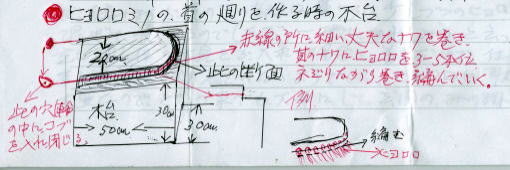 ◉ ヒョロロミノの、首の廻りを、作る時の木台
赤線の所に細い丈夫なナワを巻き、
首のナワにヒョロロを3〜5本づつ
ネジりながら巻き、編んでいく。
24cm
此の断面
此の穴
の中にコブ
を入れ閉じる。
木台
50cm
30cm
30cm
例
編む
ヒョロロ